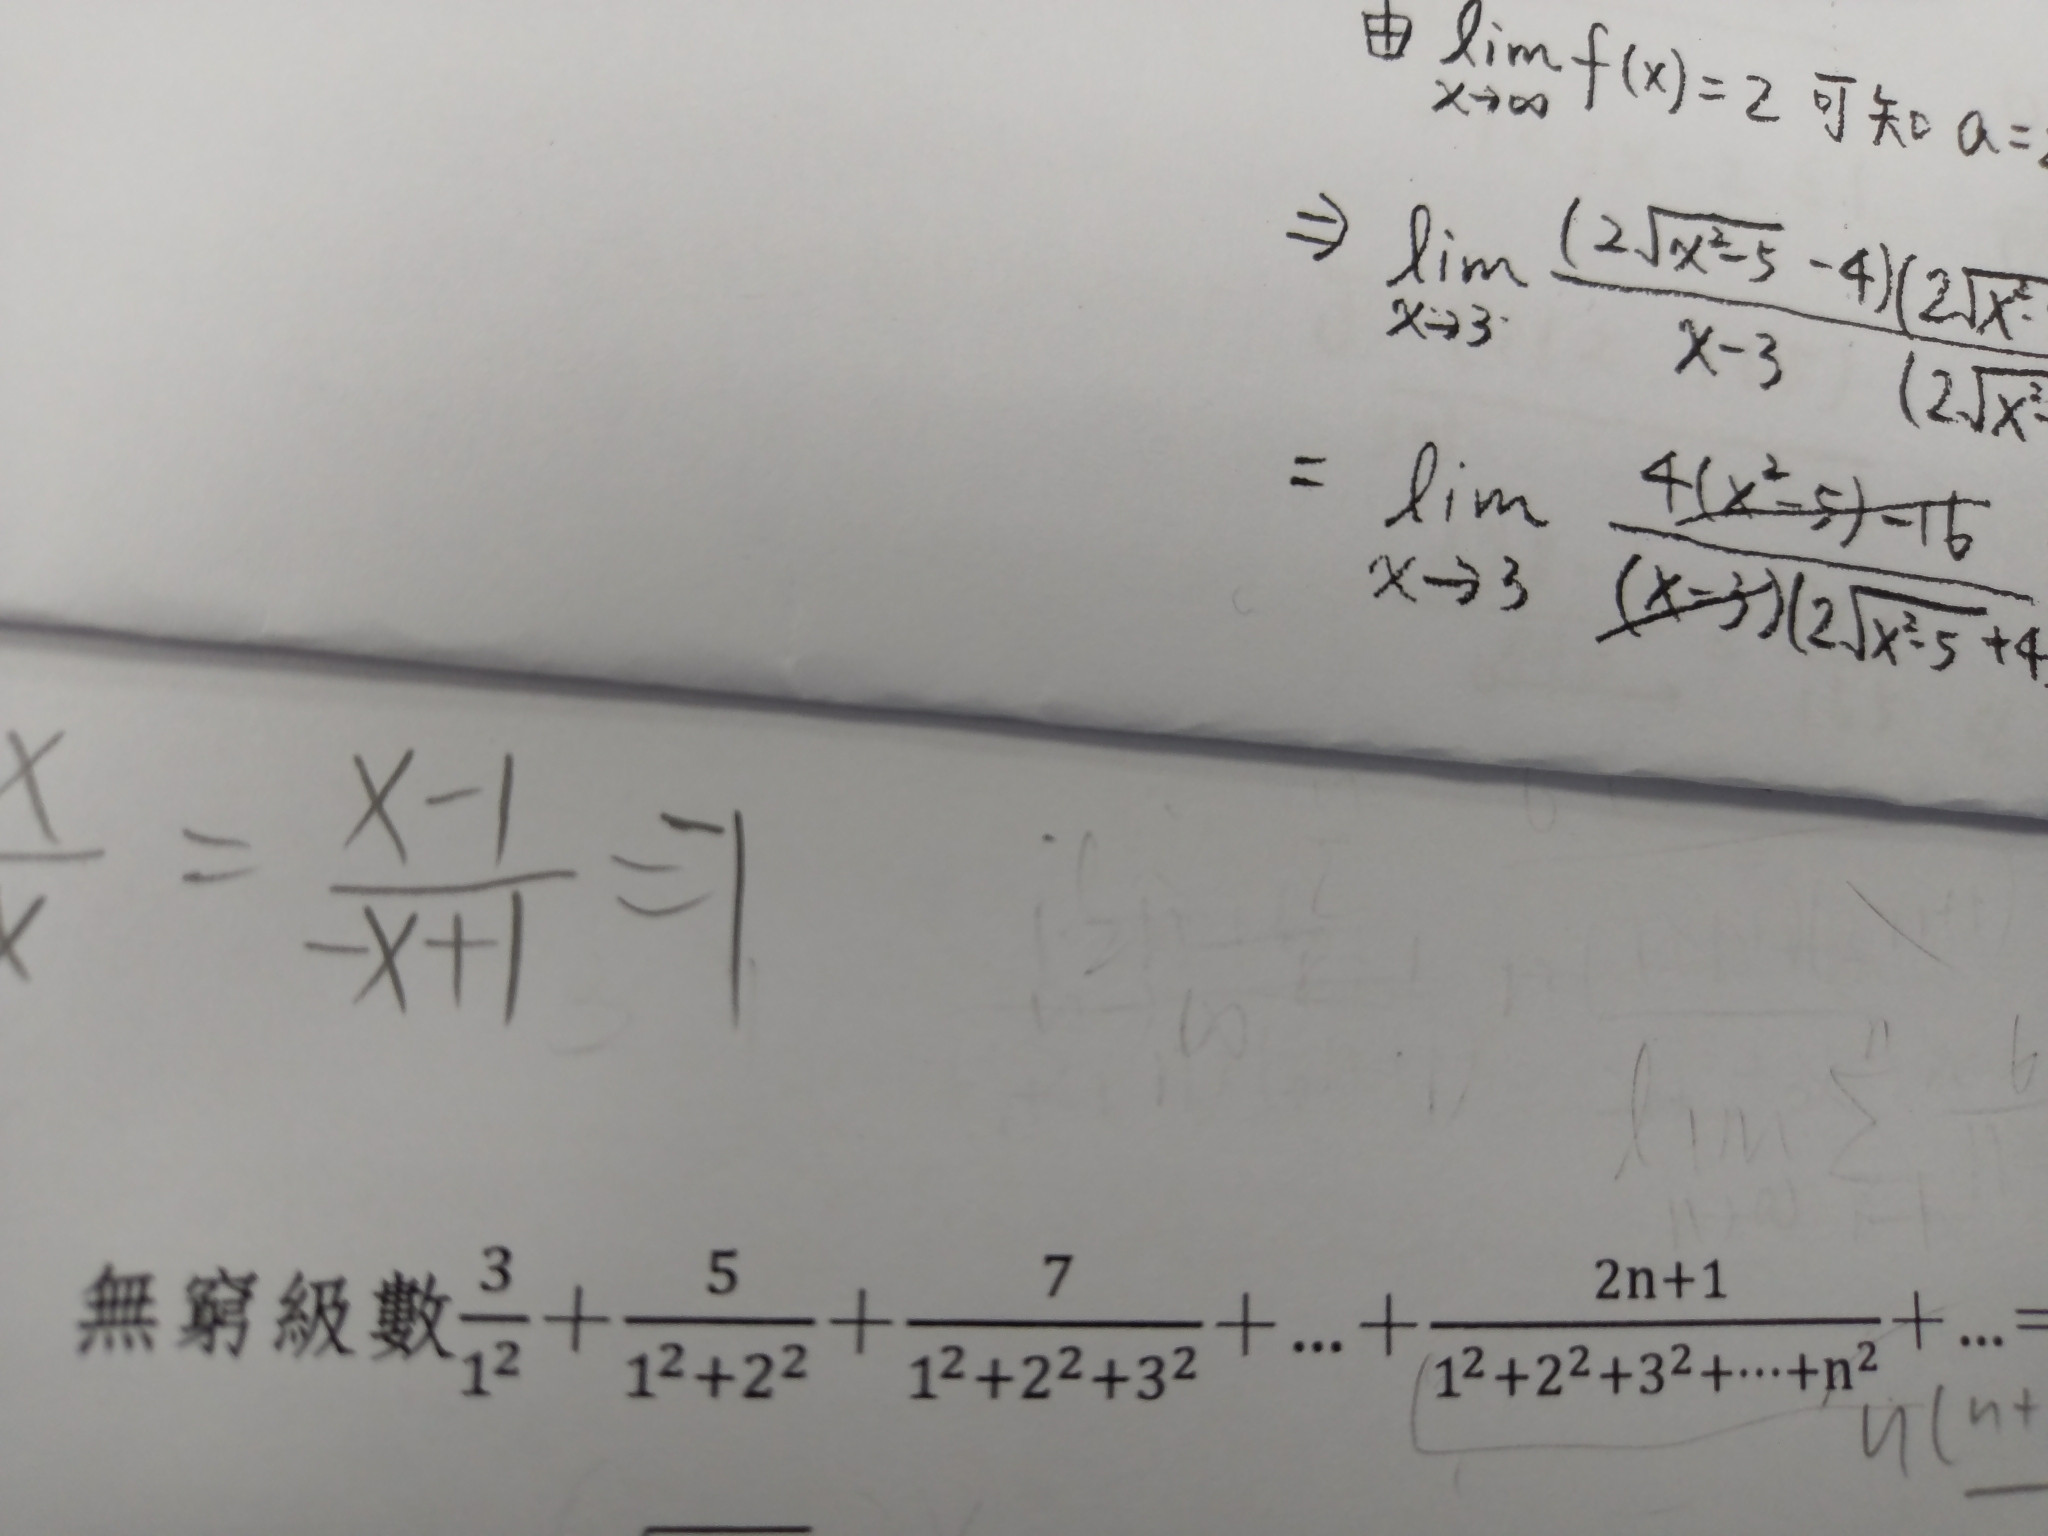 由 lim f(x) = 2 可知 a =
x→∞
⇒ lim (2√x²-5 -4)(2√x²-
x→3 x-3 (2√x²-
= lim 4(x²-5)-16
x→3 (x-3)(2√x²-5+4
x = x-1 = -1
x -x+1
無窮級數 3/1² + 5/1²+2² + 7/1²+2²+3² +...+ 2n+1/1²+2²+3²+⋯+n² +...=
n(n+